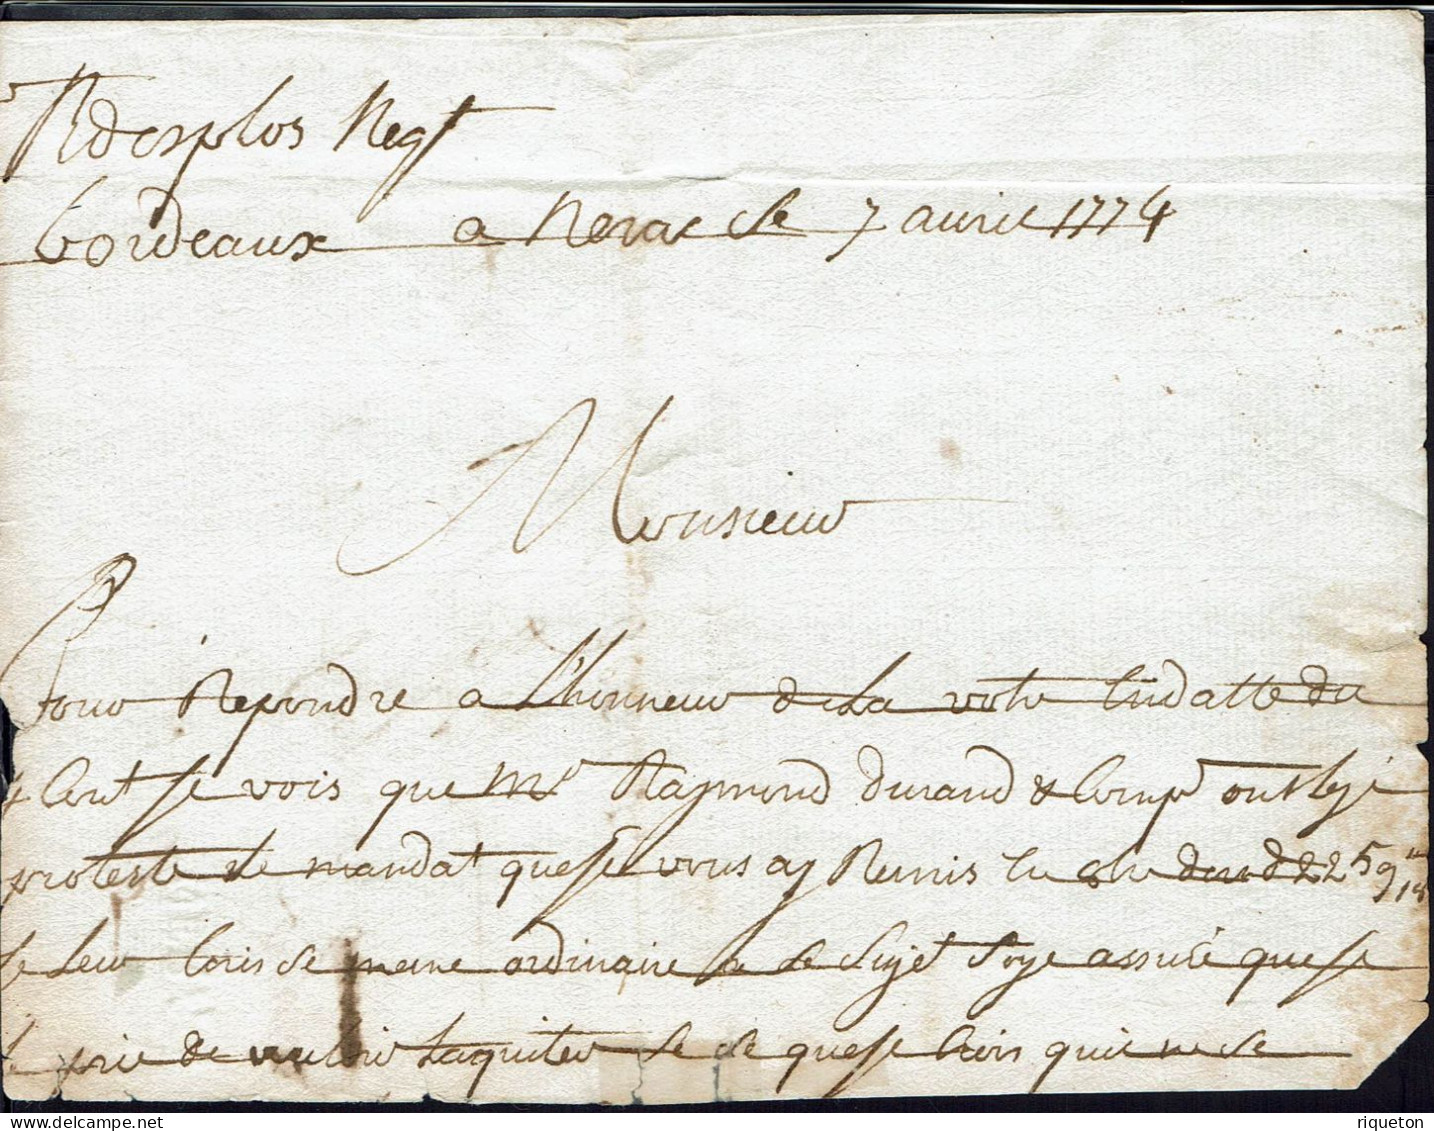 R desplos Negt
bordeaux a Nerac le 7 avril 1774
Monsieur
Pour Repondre a L'honneur de La votre Endatte du
Cout Je vois que Mr Raymond Durand & Compe ont
proteste le mandat que Je vous ay Remis 2259
le leur Ecris de meme ordinaire a le Sujet Soye assuré que Je
prie de vouloir Laquiter que Je Crois quil ne se
riqueton